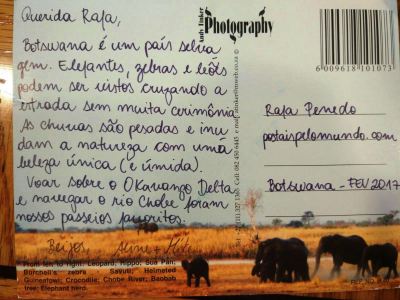 Querida Rafa,
Botswana é um país selva
gem. Elefantes, zebras e leões
podem ser vistos cruzando a
estrada sem muita cerimônia.
As chuvas são pesadas e inu
dam a natureza com uma
beleza única (e úmida).
Voar sobre o Okavango Delta
e navegar o rio Chobe foram
nossos passeios favoritos.
Beijos, Aline +
Andy Tinker
Photography
6 009618 101073
Rafa Penedo
postaispelomundo.com
Botswana - FEV 2017
From left to right: Leopard; Hippo; Sua Pan;
Burchell's zebra - Savuti; Helmeted
Guineafowl; Crocodile; Chobe River; Baobab
tree; Elephant herd.